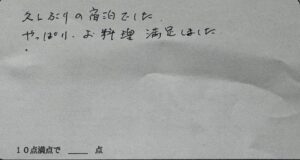 久しぶりの宿泊でした.
やっぱり、お料理 満足しました
.
10点満点で ____ 点